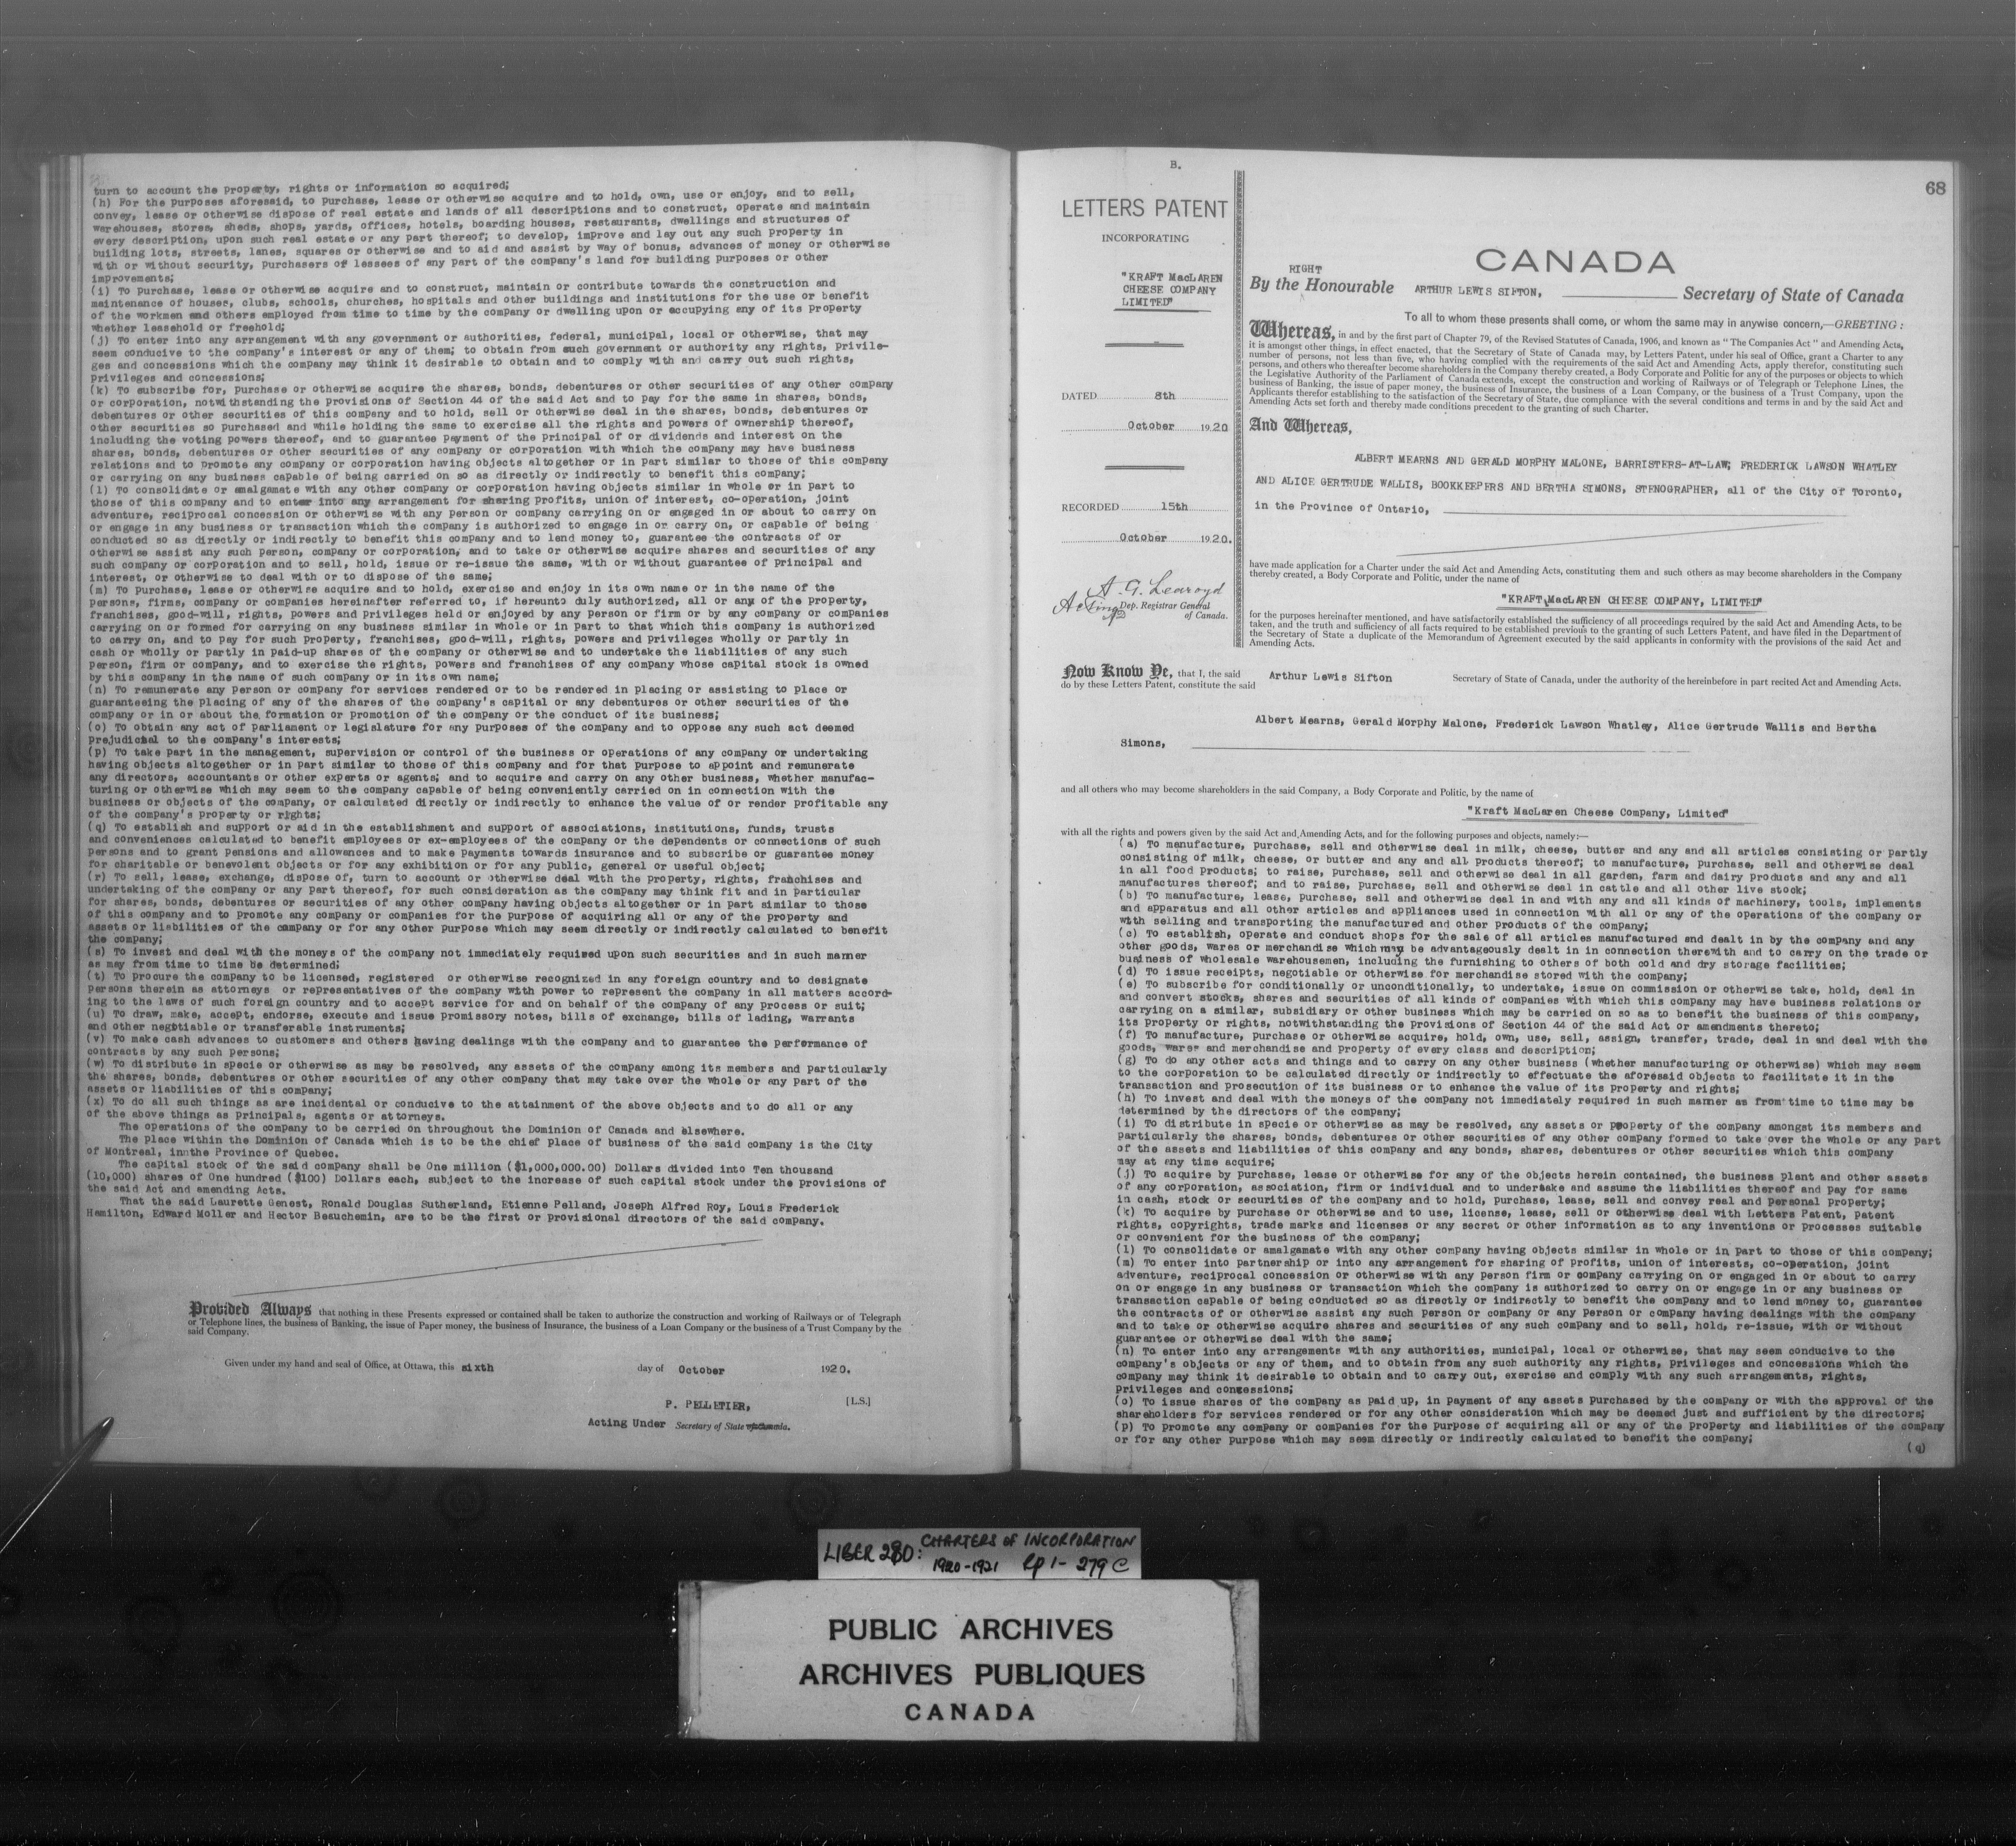 turn to account the property, rights or information so acquired;
(h) For the purposes aforesaid, to purchase, lease or otherwise acquire and to hold, own, use or enjoy, and to sell,
convey, lease or otherwise dispose of real estate and lands of all descriptions and to construct, operate and maintain
warehouses, stores, sheds, shops, yards, offices, hotels, boarding houses, restaurants, dwellings and structures of
every description, upon such real estate or any part thereof; to develop, improve and lay out any such property in
building lots, streets, lanes, squares or otherwise and to aid and assist by way of bonus, advances of money or otherwise
with or without security, purchasers of lessees of any part of the company's land for building purposes or other
improvements;
(i) To purchase, lease or otherwise acquire and to construct, maintain or contribute towards the construction and
maintenance of houses, clubs, schools, churches, hospitals and other buildings and institutions for the use or benefit
of the workmen and others employed from time to time by the company or dwelling upon or occupying any of its property
whether leasehold or freehold;
(j) To enter into any arrangement with any government or authorities, federal, municipal, local or otherwise, that may
seem conducive to the company's interest or any of them; to obtain from such government or authority any rights, privile-
ges and concessions which the company may think it desirable to obtain and to comply with and carry out such rights,
privileges and concessions;
(k) To subscribe for, purchase or otherwise acquire the shares, bonds, debentures or other securities of any other company
or corporation, notwithstanding the provisions of Section 44 of the said Act and to pay for the same in shares, bonds,
debentures or other securities of this company and to hold, sell or otherwise deal in the shares, bonds, debentures or
other securities so purchased and while holding the same to exercise all the rights and powers of ownership thereof,
including the voting powers thereof, and to guarantee payment of the principal of or dividends and interest on the
shares, bonds, debentures or other securities of any company or corporation with which the company may have business
relations and to promote any company or corporation having objects altogether or in part similar to those of this company
or carrying on any business capable of being carried on so as directly or indirectly to benefit this company;
(l) To consolidate or amalgamate with any other company or corporation having objects similar in whole or in part to
those of this company and to enter into any arrangement for sharing profits, union of interest, co-operation, joint
adventure, reciprocal concession or otherwise with any person or company carrying on or engaged in or about to carry on
or engage in any business or transaction which the company is authorized to engage in or carry on, or capable of being
conducted so as directly or indirectly to benefit this company and to lend money to, guarantee the contracts of or
otherwise assist any such person, company or corporation, and to take or otherwise acquire shares and securities of any
such company or corporation and to sell, hold, issue or re-issue the same, with or without guarantee of principal and
interest, or otherwise to deal with or to dispose of the same;
(m) To purchase, lease or otherwise acquire and to hold, exercise and enjoy in its own name or in the name of the
persons, firms, company or companies hereinafter referred to, if hereunto duly authorized, all or any of the property,
franchises, good-will, rights, powers and privileges held or enjoyed by any person or firm or by any company or companies
carrying on or formed for carrying on any business similar in whole or in part to that which this company is authorized
to carry on, and to pay for such property, franchises, good-will, rights, powers and privileges wholly or partly in
cash or wholly or partly in paid-up shares of the company or otherwise and to undertake the liabilities of any such
person, firm or company, and to exercise the rights, powers and franchises of any company whose capital stock is owned
by this company in the name of such company or in its own name;
(n) To remunerate any person or company for services rendered or to be rendered in placing or assisting to place or
guaranteeing the placing of any of the shares of the company's capital or any debentures or other securities of the
company or in or about the formation or promotion of the company or the conduct of its business;
(o) To obtain any act of parliament or legislature for any purposes of the company and to oppose any such act deemed
prejudicial to the company's interests;
(p) To take part in the management, supervision or control of the business or operations of any company or undertaking
having objects altogether or in part similar to those of this company and for that purpose to appoint and remunerate
any directors, accountants or other experts or agents; and to acquire and carry on any other business, whether manufac-
turing or otherwise which may seem to the company capable of being conveniently carried on in connection with the
business or objects of the company, or calculated directly or indirectly to enhance the value of or render profitable any
of the company's property or rights;
(q) To establish and support or aid in the establishment and support of associations, institutions, funds, trusts
and conveniences calculated to benefit employees or ex-employees of the company or the dependents or connections of such
persons and to grant pensions and allowances and to make payments towards insurance and to subscribe or guarantee money
for charitable or benevolent objects or for any exhibition or for any public, general or useful object;
(r) To sell, lease, exchange, dispose of, turn to account or otherwise deal with the property, rights, franchises and
undertaking of the company or any part thereof, for such consideration as the company may think fit and in particular
for shares, bonds, debentures or securities of any other company having objects altogether or in part similar to those
of this company and to promote any company or companies for the purpose of acquiring all or any of the property and
assets or liabilities of the company or for any other purpose which may seem directly or indirectly calculated to benefit
the company;
(s) To invest and deal with the moneys of the company not immediately required upon such securities and in such manner
as may from time to time be determined;
(t) To procure the company to be licensed, registered or otherwise recognized in any foreign country and to designate
persons therein as attorneys or representatives of the company with power to represent the company in all matters accord-
ing to the laws of such foreign country and to accept service for and on behalf of the company of any process or suit;
(u) To draw, make, accept, endorse, execute and issue promissory notes, bills of exchange, bills of lading, warrants
and other negotiable or transferable instruments;
(v) To make cash advances to customers and others having dealings with the company and to guarantee the performance of
contracts by any such persons;
(w) To distribute in specie or otherwise as may be resolved, any assets of the company among its members and particularly
the shares, bonds, debentures or other securities of any other company that may take over the whole or any part of the
assets or liabilities of this company;
(x) To do all such things as are incidental or conducive to the attainment of the above objects and to do all or any
of the above things as principals, agents or attorneys.
The operations of the company to be carried on throughout the Dominion of Canada and elsewhere.
The place within the Dominion of Canada which is to be the chief place of business of the said company is the City
of Montreal, in the Province of Quebec.
The capital stock of the said company shall be One million ($1,000,000.00) Dollars divided into Ten thousand
(10,000) shares of One hundred ($100) Dollars each, subject to the increase of such capital stock under the provisions of
the said Act and amending Acts.
That the said Laurette Genest, Ronald Douglas Sutherland, Etienne Pelland, Joseph Alfred Roy, Louis Frederick
Hamilton, Edward Moller and Hector Beauchemin, are to be the first or provisional directors of the said company.
Provided Always that nothing in these Presents expressed or contained shall be taken to authorize the construction and working of Railways or of Telegraph
or Telephone lines, the business of Banking, the issue of Paper money, the business of Insurance, the business of a Loan Company or the business of a Trust Company by the
said Company.
Given under my hand and seal of Office, at Ottawa, this sixth day of October 1920.
P. PELLETIER, [L.S.]
Acting Under Secretary of State
B.
68
LETTERS PATENT
INCORPORATING
"KRAFT MacLAREN
CHEESE COMPANY
LIMITED"
DATED 8th
October 1920
RECORDED 15th
October 1920.
A. G. Learoyd
Acting Dep. Registrar General
of Canada.
CANADA
RIGHT
By the Honourable ARTHUR LEWIS SIFTON, Secretary of State of Canada
To all to whom these presents shall come, or whom the same may in anywise concern,—GREETING:
Whereas, in and by the first part of Chapter 79, of the Revised Statutes of Canada, 1906, and known as "The Companies Act" and Amending Acts,
it is amongst other things, in effect enacted, that the Secretary of State of Canada may, by Letters Patent, under his seal of Office, grant a Charter to any
number of persons, not less than five, who having complied with the requirements of the said Act and Amending Acts, apply therefor, constituting such
persons, and others who thereafter become shareholders in the Company thereby created, a Body Corporate and Politic for any of the purposes or objects to which
the Legislative Authority of the Parliament of Canada extends, except the construction and working of Railways or of Telegraph or Telephone Lines, the
business of Banking, the issue of paper money, the business of Insurance, the business of a Loan Company, or the business of a Trust Company, upon the
Applicants therefor establishing to the satisfaction of the Secretary of State, due compliance with the several conditions and terms in and by the said Act and
Amending Acts set forth and thereby made conditions precedent to the granting of such Charter.
And Whereas,
ALBERT MEARNS AND GERALD MORPHY MALONE, BARRISTERS-AT-LAW; FREDERICK LAWSON WHATLEY
AND ALICE GERTRUDE WALLIS, BOOKKEEPERS AND BERTHA SIMONS, STENOGRAPHER, all of the City of Toronto,
in the Province of Ontario,
have made application for a Charter under the said Act and Amending Acts, constituting them and such others as may become shareholders in the Company
thereby created, a Body Corporate and Politic, under the name of
"KRAFT MacLAREN CHEESE COMPANY, LIMITED"
for the purposes hereinafter mentioned, and have satisfactorily established the sufficiency of all proceedings required by the said Act and Amending Acts, to be
taken, and the truth and sufficiency of all facts required to be established previous to the granting of such Letters Patent, and have filed in the Department of
the Secretary of State a duplicate of the Memorandum of Agreement executed by the said applicants in conformity with the provisions of the said Act and
Amending Acts.
Now Know Ye, that I, the said Arthur Lewis Sifton Secretary of State of Canada, under the authority of the hereinbefore in part recited Act and Amending Acts.
do by these Letters Patent, constitute the said
Albert Mearns, Gerald Morphy Malone, Frederick Lawson Whatley, Alice Gertrude Wallis and Bertha
Simons,
and all others who may become shareholders in the said Company, a Body Corporate and Politic, by the name of
"Kraft MacLaren Cheese Company, Limited"
with all the rights and powers given by the said Act and Amending Acts, and for the following purposes and objects, namely:—
(a) To manufacture, purchase, sell and otherwise deal in milk, cheese, butter and any and all articles consisting or partly
consisting of milk, cheese, or butter and any and all products thereof; to manufacture, purchase, sell and otherwise deal
in all food products; to raise, purchase, sell and otherwise deal in all garden, farm and dairy products and any and all
manufactures thereof; and to raise, purchase, sell and otherwise deal in cattle and all other live stock;
(b) To manufacture, lease, purchase, sell and otherwise deal in and with any and all kinds of machinery, tools, implements
and apparatus and all other articles and appliances used in connection with all or any of the operations of the company or
with selling and transporting the manufactured and other products of the company;
(c) To establish, operate and conduct shops for the sale of all articles manufactured and dealt in by the company and any
other goods, wares or merchandise which may be advantageously dealt in in connection therewith and to carry on the trade or
business of wholesale warehousemen, including the furnishing to others of both cold and dry storage facilities;
(d) To issue receipts, negotiable or otherwise for merchandise stored with the company;
(e) To subscribe for conditionally or unconditionally, to undertake, issue on commission or otherwise take, hold, deal in
and convert stocks, shares and securities of all kinds of companies with which this company may have business relations or
carrying on a similar, subsidiary or other business which may be carried on so as to benefit the business of this company,
its property or rights, notwithstanding the provisions of Section 44 of the said Act or amendments thereto;
(f) To manufacture, purchase or otherwise acquire, hold, own, use, sell, assign, transfer, trade, deal in and deal with the
goods, wares and merchandise and property of every class and description;
(g) To do any other acts and things and to carry on any other business (whether manufacturing or otherwise) which may seem
to the corporation to be calculated directly or indirectly to effectuate the aforesaid objects to facilitate it in the
transaction and prosecution of its business or to enhance the value of its property and rights;
(h) To invest and deal with the moneys of the company not immediately required in such manner as from time to time may be
determined by the directors of the company;
(i) To distribute in specie or otherwise as may be resolved, any assets or property of the company amongst its members and
particularly the shares, bonds, debentures or other securities of any other company formed to take over the whole or any part
of the assets and liabilities of this company and any bonds, shares, debentures or other securities which this company
may at any time acquire;
(j) To acquire by purchase, lease or otherwise for any of the objects herein contained, the business plant and other assets
of any corporation, association, firm or individual and to undertake and assume the liabilities thereof and pay for same
in cash, stock or securities of the company and to hold, purchase, lease, sell and convey real and personal property;
(k) To acquire by purchase or otherwise and to use, license, lease, sell or otherwise deal with Letters Patent, patent
rights, copyrights, trade marks and licenses or any secret or other information as to any inventions or processes suitable
or convenient for the business of the company;
(l) To consolidate or amalgamate with any other company having objects similar in whole or in part to those of this company;
(m) To enter into partnership or into any arrangement for sharing of profits, union of interests, co-operation, joint
adventure, reciprocal concession or otherwise with any person firm or company carrying on or engaged in or about to carry
on or engage in any business or transaction which the company is authorized to carry on or engage in or any business or
transaction capable of being conducted so as directly or indirectly to benefit the company and to lend money to, guarantee
the contracts of or otherwise assist any such person or company or any person or company having dealings with the company
and to take or otherwise acquire shares and securities of any such company and to sell, hold, re-issue, with or without
guarantee or otherwise deal with the same;
(n) To enter into any arrangements with any authorities, municipal, local or otherwise, that may seem conducive to the
company's objects or any of them, and to obtain from any such authority any rights, privileges and concessions which the
company may think it desirable to obtain and to carry out, exercise and comply with any such arrangements, rights,
privileges and concessions;
(o) To issue shares of the company as paid up, in payment of any assets purchased by the company or with the approval of the
shareholders for services rendered or for any other consideration which may be deemed just and sufficient by the directors;
(p) To promote any company or companies for the purpose of acquiring all or any of the property and liabilities of the company
or for any other purpose which may seem directly or indirectly calculated to benefit the company;
(q)
LIBER 280: CHARTERS OF INCORPORATION
1920-1921 pp 1-279C
PUBLIC ARCHIVES
ARCHIVES PUBLIQUES
CANADA